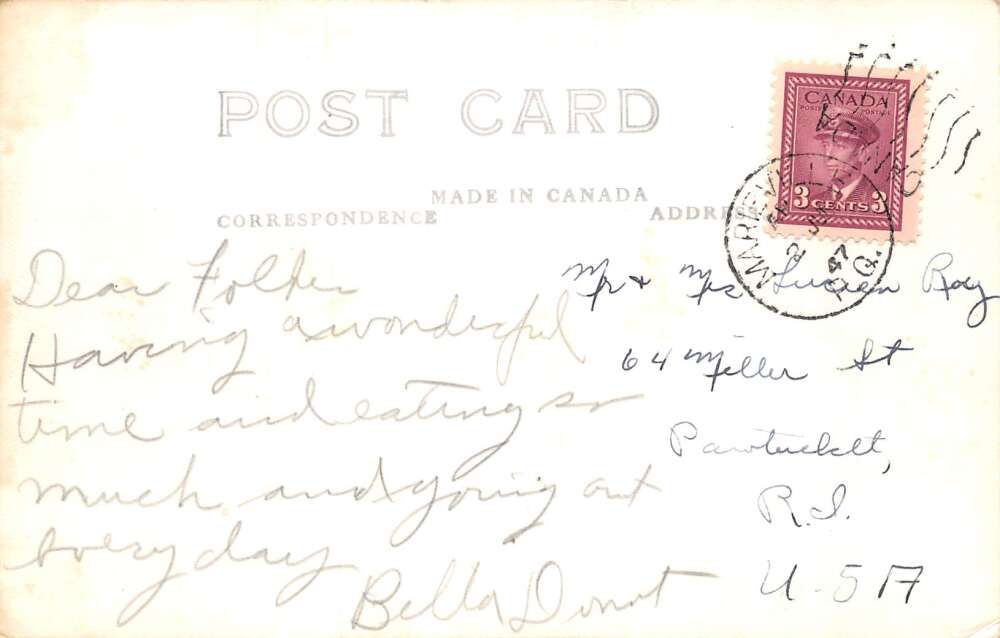 POST CARD
MADE IN CANADA
CORRESPONDENCE
ADDRESS
CANADA
POSTES POSTAGE
3 CENTS 3
MARIEVI
47
P.Q.
Dear Folks
Having a wonderful
time and eating so
much and going out
every day
Bella
Mr + Mrs Lucien Roy
64 Miller St
Pawtucket,
R.I.
U.S.A